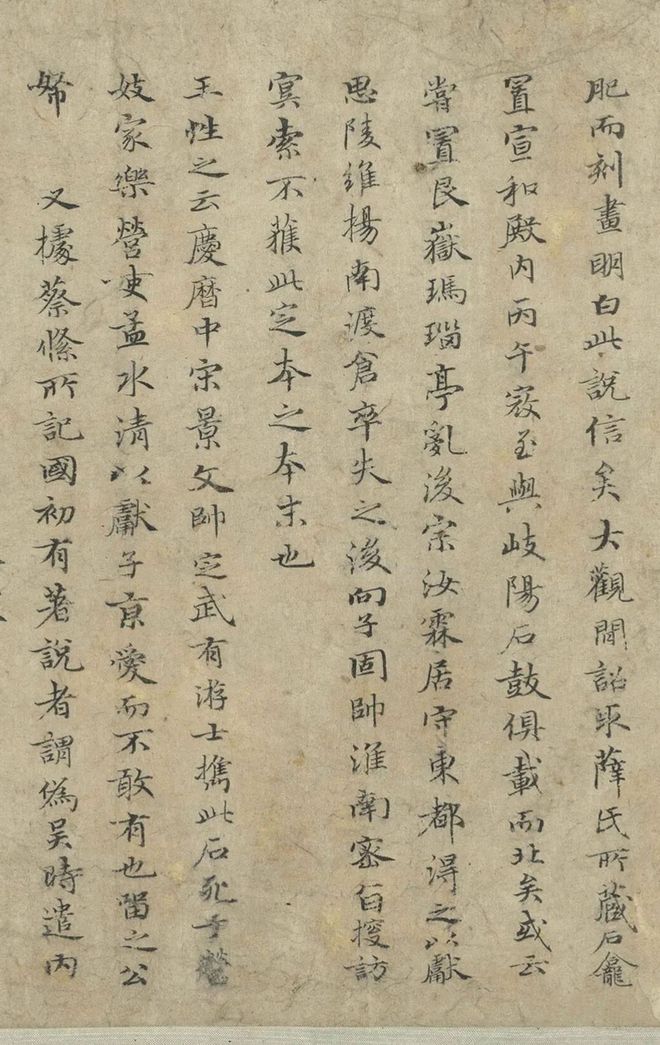 肥而刻畫明白此說信矣大觀間詔取薛氏所藏石龕
置宣和殿內丙午寇至與岐陽石鼓俱載而北矣或云
嘗置艮嶽瑪瑙亭亂後宗汝霖居守東都得之以獻
思陵維揚南渡倉卒失之後向子固帥淮南密旨搜訪
冥索不獲此定本之本末也
王性之云慶曆中宋景文帥定武有游士攜此石死于營
妓家樂營吏孟水清以獻子京愛而不敢有也留之公
帑 又據蔡絛所記國初有著說者謂偽吳時遣內